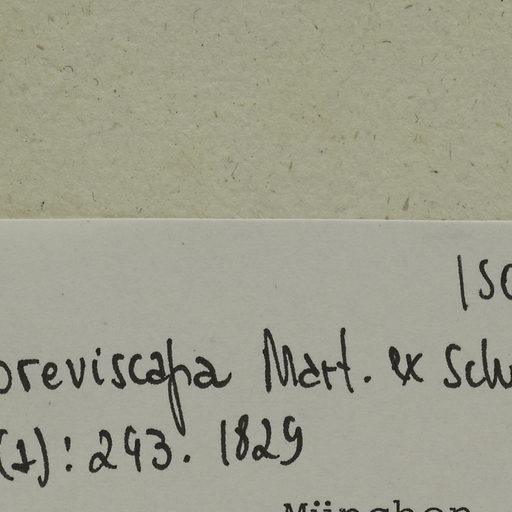 ISO
breviscapa Mart. ex Sch
(1): 243. 1829
München